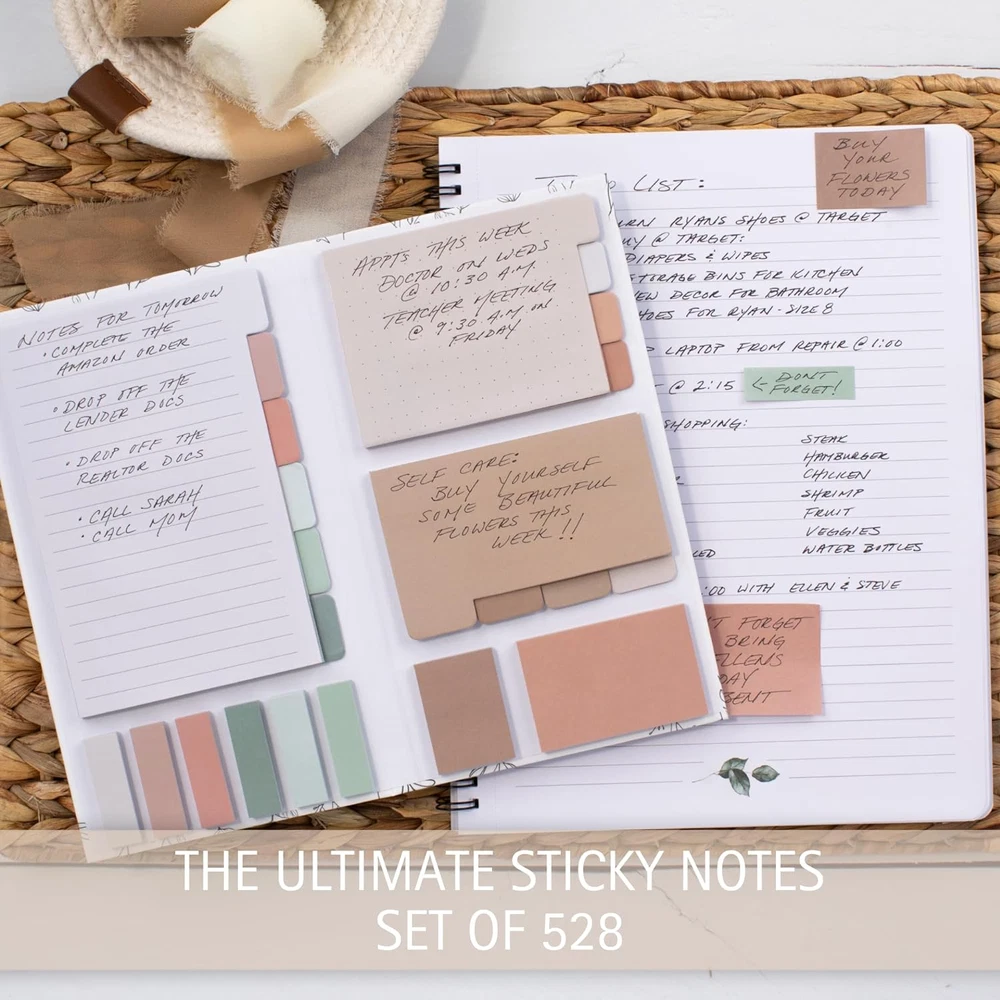 NOTES FOR TOMORROW
• COMPLETE THE
AMAZON ORDER
• DROP OFF THE
LENDER DOCS
• DROP OFF THE
REALTOR DOCS
• CALL SARAH
• CALL MOM
APPTS THIS WEEK
DOCTOR ON WEDS
@ 10:30 A.M.
TEACHER MEETING
@ 9:30 A.M. ON
FRIDAY
SELF CARE:
BUY YOURSELF
SOME BEAUTIFUL
FLOWERS THIS
WEEK!!
LIST:
BUY
YOUR
FLOWERS
TODAY
RYANS SHOES @ TARGET
@ TARGET:
DIAPERS & WIPES
STORAGE BINS FOR KITCHEN
NEW DECOR FOR BATHROOM
SHOES FOR RYAN - SIZE 8
LAPTOP FROM REPAIR @ 1:00
@ 2:15
<- DONT
FORGET!
SHOPPING:
STEAK
HAMBURGER
CHICKEN
SHRIMP
FRUIT
VEGGIES
WATER BOTTLES
:00 WITH ELLEN & STEVE
FORGET
BRING
ELLENS
THE ULTIMATE STICKY NOTES
SET OF 528